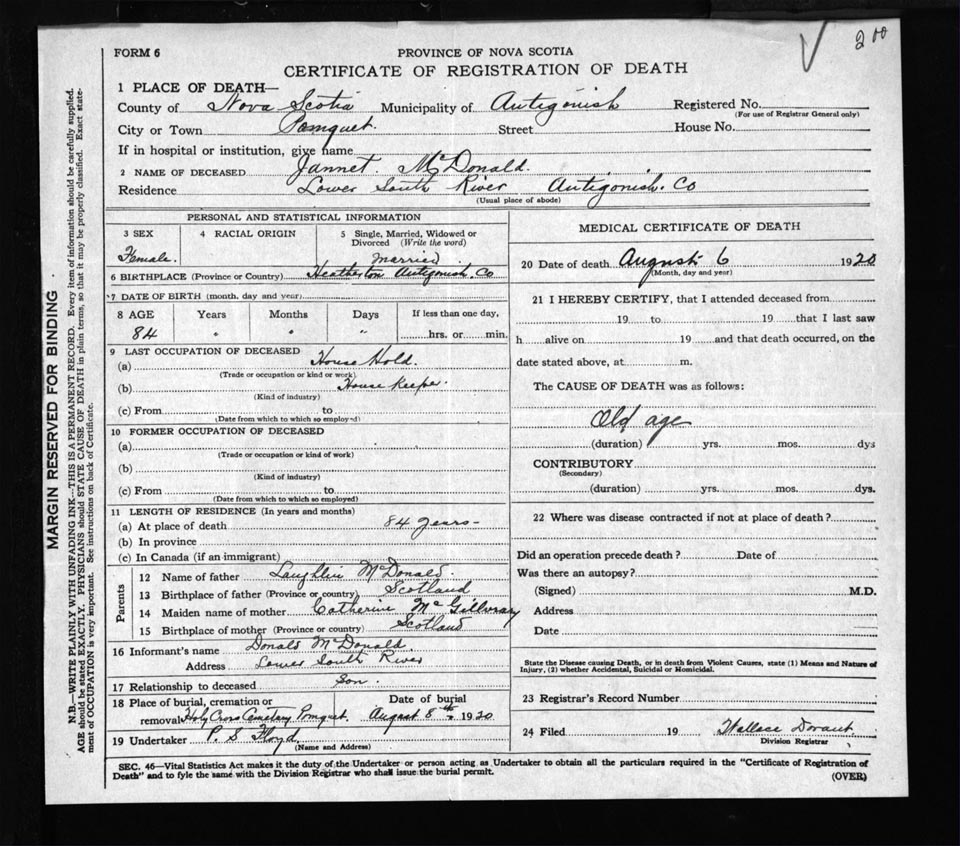 200
FORM 6
PROVINCE OF NOVA SCOTIA
CERTIFICATE OF REGISTRATION OF DEATH
1 PLACE OF DEATH—
County of Nova Scotia Municipality of Antigonish Registered No.
(For use of Registrar General only)
City or Town Pomquet. Street House No.
If in hospital or institution, give name
2 NAME OF DECEASED Jannet. McDonald.
Residence Lower South River Antigonish. Co
(Usual place of abode)
PERSONAL AND STATISTICAL INFORMATION
3 SEX 4 RACIAL ORIGIN 5 Single, Married, Widowed or
Divorced (Write the word)
Female. Married
6 BIRTHPLACE (Province or Country) Heatherton Antigonish. Co
7 DATE OF BIRTH (month, day and year)
8 AGE Years Months Days If less than one day,
84 " " " hrs. or min.
9 LAST OCCUPATION OF DECEASED
(a) House Hold.
(Trade or occupation or kind or work)
(b) House Keeper.
(Kind of industry)
(c) From to
(Date from which to which so employed)
10 FORMER OCCUPATION OF DECEASED
(a)
(Trade or occupation or kind of work)
(b)
(Kind of industry)
(c) From to
(Date from which to which so employed)
11 LENGTH OF RESIDENCE (In years and months)
(a) At place of death 84 years-
(b) In province
(c) In Canada (if an immigrant)
Parents
12 Name of father Laughlin McDonald.
13 Birthplace of father (Province or country) Scotland
14 Maiden name of mother Catherine McGillvray
15 Birthplace of mother (Province or country) Scotland
16 Informant's name Donald McDonald.
Address Lower South River
17 Relationship to deceased Son.
18 Place of burial, cremation or Date of burial
removal Holy Cross Cemetary Pomquet. August 8th. 1920
19 Undertaker P. S Floyd
(Name and Address)
MEDICAL CERTIFICATE OF DEATH
20 Date of death August 6 1920
(Month, day and year)
21 I HEREBY CERTIFY, that I attended deceased from
19 to 19 that I last saw
h alive on 19 and that death occurred, on the
date stated above, at m.
The CAUSE OF DEATH was as follows:
Old age
(duration) yrs. mos. dys
CONTRIBUTORY
(Secondary)
(duration) yrs. mos. dys.
22 Where was disease contracted if not at place of death?
Did an operation precede death? Date of
Was there an autopsy?
(Signed) M.D.
Address
Date
State the Disease causing Death, or in death from Violent Causes, state (1) Means and Nature of
Injury, (2) whether Accidental, Suicidal or Homicidal.
23 Registrar's Record Number
24 Filed 19 Wallace Dorant
Division Registrar
SEC. 46—Vital Statistics Act makes it the duty of the Undertaker or person acting as Undertaker to obtain all the particulars required in the "Certificate of Registration of
Death" and to fyle the same with the Division Registrar who shall issue the burial permit. (OVER)
MARGIN RESERVED FOR BINDING
N.B.—WRITE PLAINLY WITH UNFADING INK—THIS IS A PERMANENT RECORD. Every item of information should be carefully supplied.
AGE should be stated EXACTLY. PHYSICIANS should STATE CAUSE OF DEATH in plain terms, so that it may be properly classified. Exact state-
ment of OCCUPATION is very important. See instructions on back of Certificate.